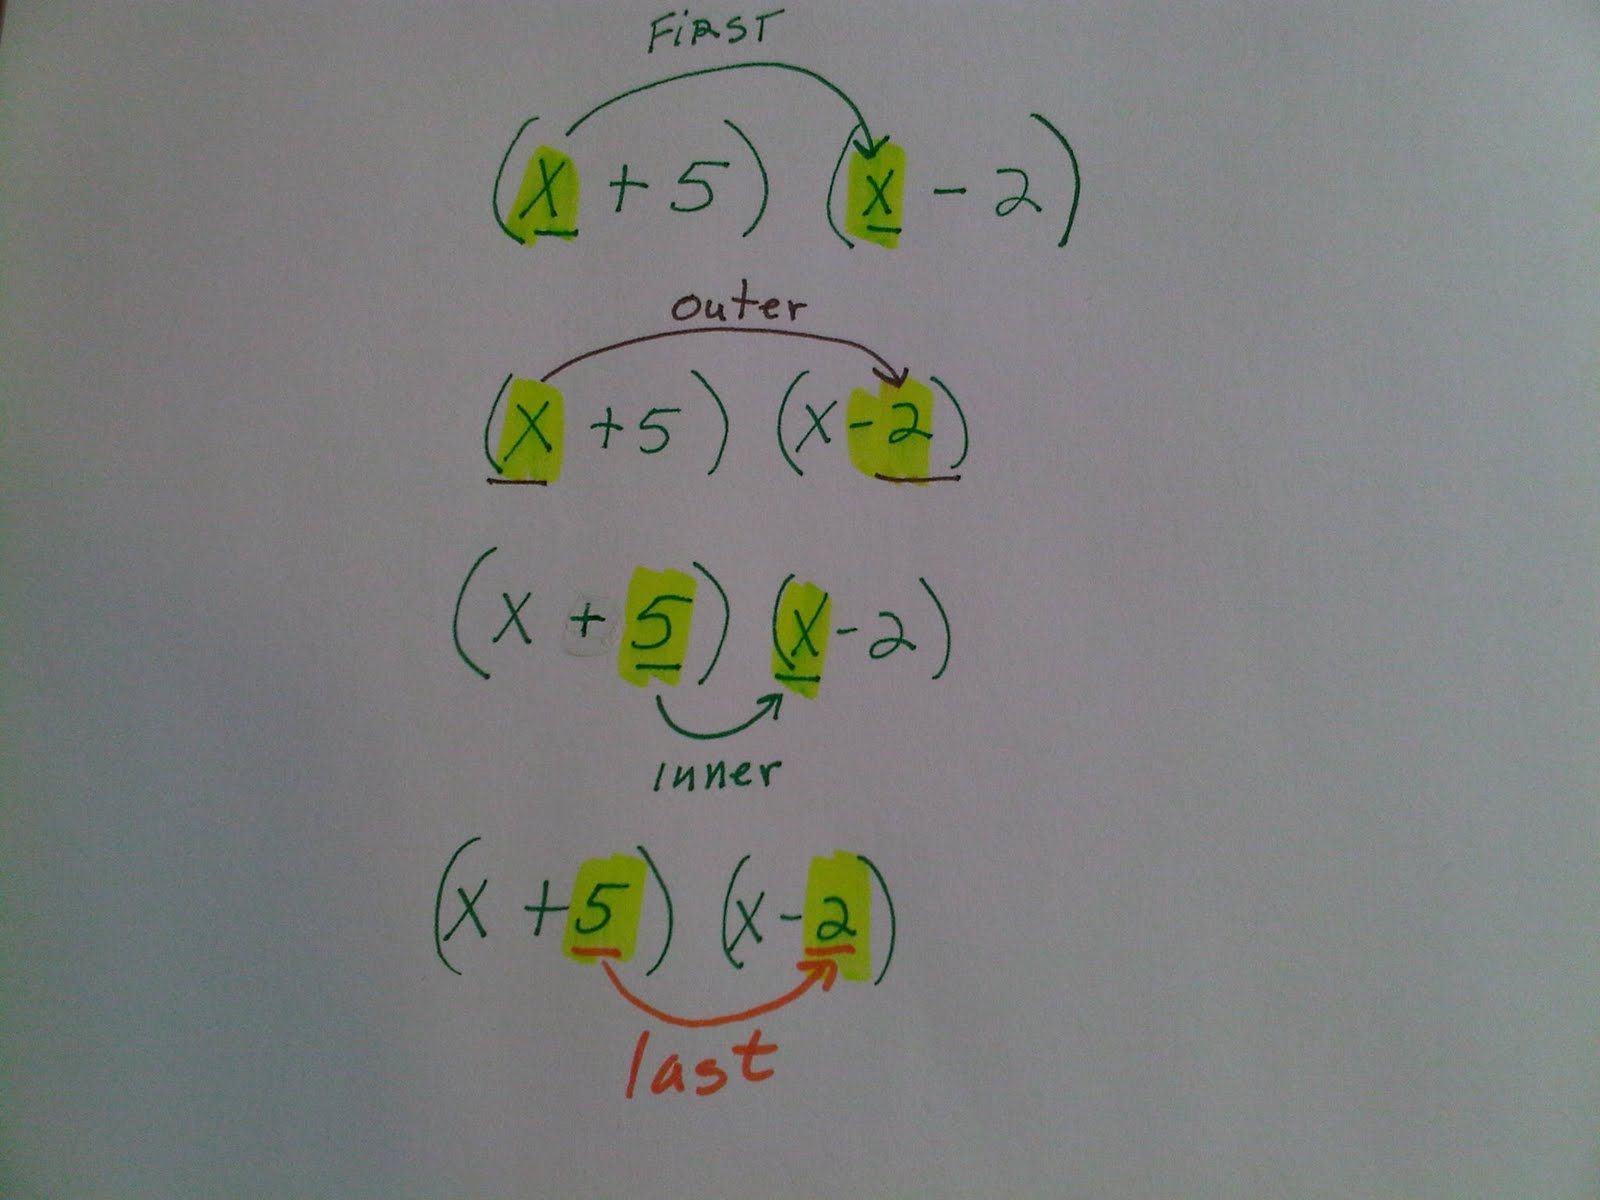 FiRST
(x + 5) (x - 2)
outer
(x + 5) (x - 2)
(x + 5) (x - 2)
inner
(x + 5) (x - 2)
last